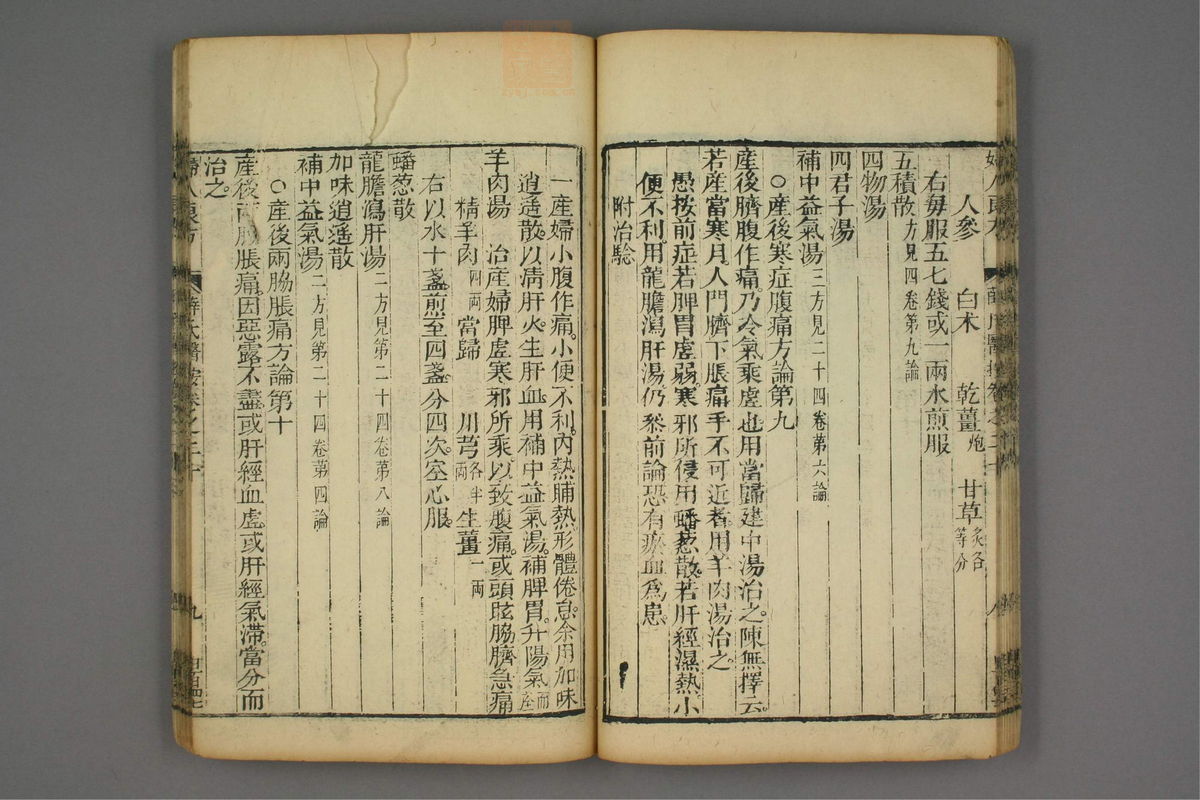 人參 白朮 乾薑炮 甘草炙各等分
右每服五七錢或一兩水煎服
五積散方見四卷第九論
四物湯
四君子湯
補中益氣湯三方見二十四卷第六論
○產後寒症腹痛方論第九
產後臍腹作痛乃冷氣乘虛也用當歸建中湯治之陳無擇云
若產當寒月人門臍下脹痛手不可近者用羊肉湯治之
愚按前症若脾胃虛弱寒邪所侵用蟠葱散若肝經濕熱小
便不利用龍膽瀉肝湯仍叅前論恐有瘀血為患
附治驗
一產婦小腹作痛小便不利內熱晡熱形體倦怠余用加味
逍遙散以清肝火生肝血用補中益氣湯補脾胃升陽氣而
羊肉湯 治產婦脾虛寒邪所乘以致腹痛或頭眩脇臍急痛
精羊肉四兩 當歸 川芎各半兩 生薑一兩
右以水十盞煎至四盞分四次空心服
蟠葱散
龍膽瀉肝湯二方見第二十四卷第八論
加味逍遙散
補中益氣湯二方見第二十四卷第四論
○產後兩脇脹痛方論第十
產後兩脇脹痛因惡露不盡或肝經血虛或肝經氣滯當分而
治之
婦人良方 薛氏醫按卷之二十 九